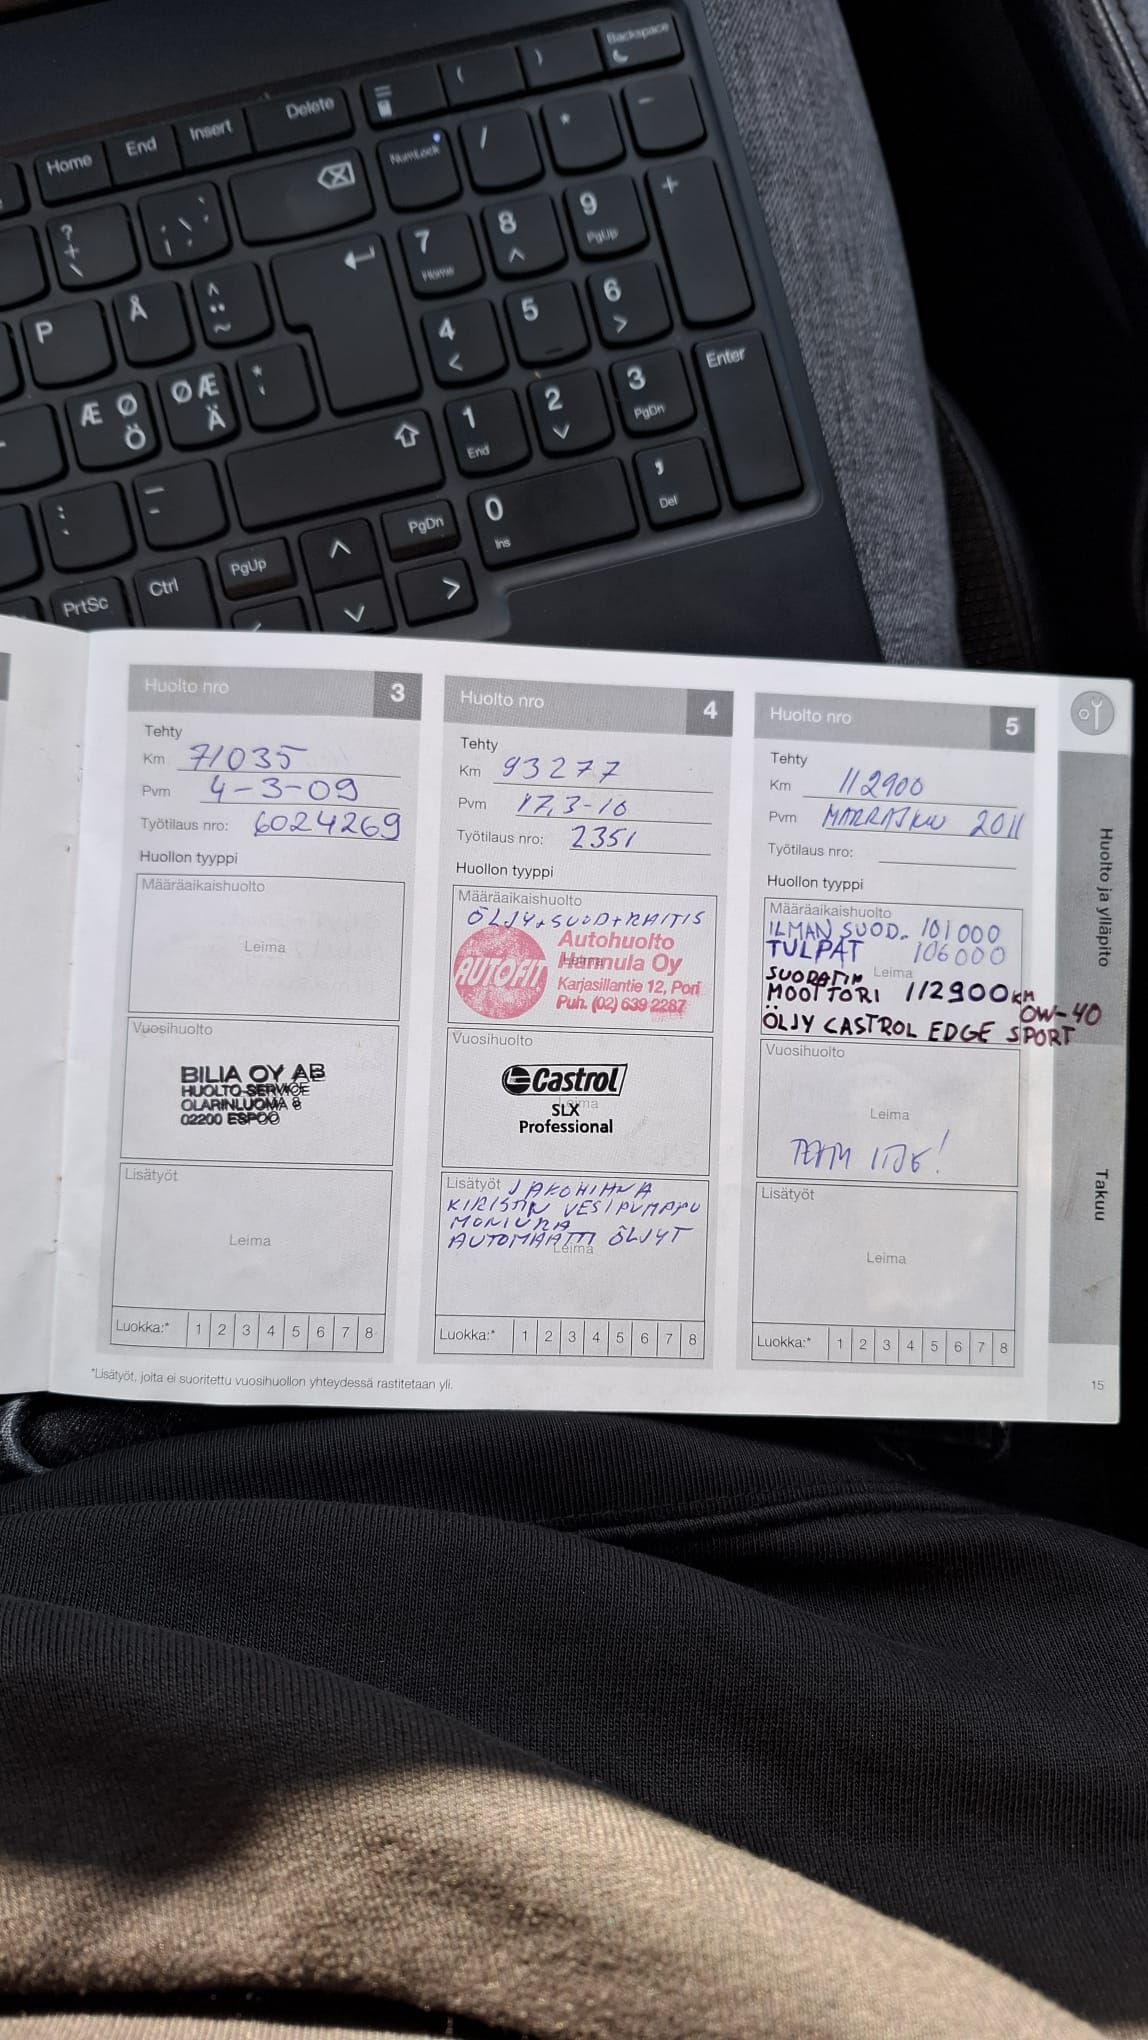 Backspace
( )
Home End Insert Delete
NumLock / * -
?
+
\
7 Home 8 9 PgUp +
P Å ^ ¨ ~
4 5 6
Æ Ø Ö Ø Æ Ä * '
1 End 2 3 PgDn Enter
: . _ -
0 Ins , Del
PrtSc Ctrl PgUp PgDn
Huolto nro 3
Tehty
Km 71035
Pvm 4-3-09
Työtilaus nro: 6024269
Huollon tyyppi
Määräaikaishuolto
Leima
Vuosihuolto
BILIA OY AB
HUOLTO-SERVICE
OLARINLUOMA 8
02200 ESPOO
Lisätyöt
Leima
Luokka:* 1 2 3 4 5 6 7 8
Huolto nro 4
Tehty
Km 93277
Pvm 17.3-10
Työtilaus nro: 2351
Huollon tyyppi
Määräaikaishuolto
ÖLJY+SUOD+RAITIS
AUTOFIT
Autohuolto
Hannula Oy
Leima
Karjasillantie 12, Pori
Puh. (02) 639 2287
Vuosihuolto
Castrol
Leima
SLX
Professional
Lisätyöt JAKOHIHNA
KIRISTIN VESIPUMPPU
MONIURA
AUTOMAATTI ÖLJYT
Leima
Luokka:* 1 2 3 4 5 6 7 8
Huolto nro 5
Tehty
Km 112900
Pvm MARRASKUU 2011
Työtilaus nro:
Huollon tyyppi
Määräaikaishuolto
ILMAN SUOD. 101000
TULPAT 106000
SUODATIN Leima
MOOTTORI 112900KM
0W-40
ÖLJY CASTROL EDGE SPORT
Vuosihuolto
Leima
TEHTY ITSE!
Lisätyöt
Leima
Luokka:* 1 2 3 4 5 6 7 8
Huolto ja ylläpito
Takuu
*Lisätyöt, joita ei suoritettu vuosihuollon yhteydessä rastitetaan yli.
15